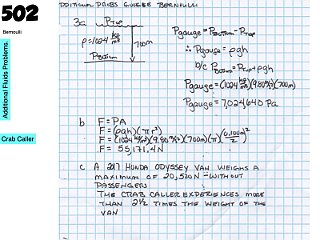 502
Bernoulli
Additional Fluids Problems,
Crab Caller
3a
P_TOP
ρ=1024 kg/m³
700m
P_BOTTOM
P_gauge = P_BOTTOM - P_TOP
∴ P_gauge = ρgh
b/c P_BOTTOM = P_TOP + ρgh
P_gauge = (1024 kg/m³)(9.80 m/s²)(700m)
P_gauge = 7,024,640 Pa
b F = PA
F = (ρgh)(πr²)
F = (1024 kg/m³)(9.80 m/s²)(700m)(π)(0.100m/2)²
F = 55,171.4N
c A 2017 HONDA ODYSSEY VAN WEIGHS A
MAXIMUM OF 20,520N - WITHOUT
PASSENGERS
THE CRAB CALLER EXPERIENCES MORE
THAN 2½ TIMES THE WEIGHT OF THE
VAN